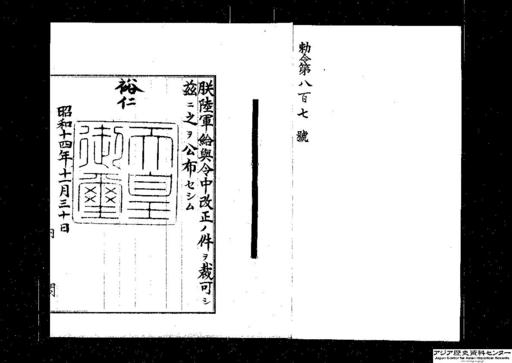 勅令第八百七號
朕陸軍給與令中改正ノ件ヲ裁可シ
茲ニ之ヲ公布セシム
裕仁
天皇
御璽
昭和十四年十一月三十日
内閣
アジア歴史資料センター
Japan Center for Asian Historical Records